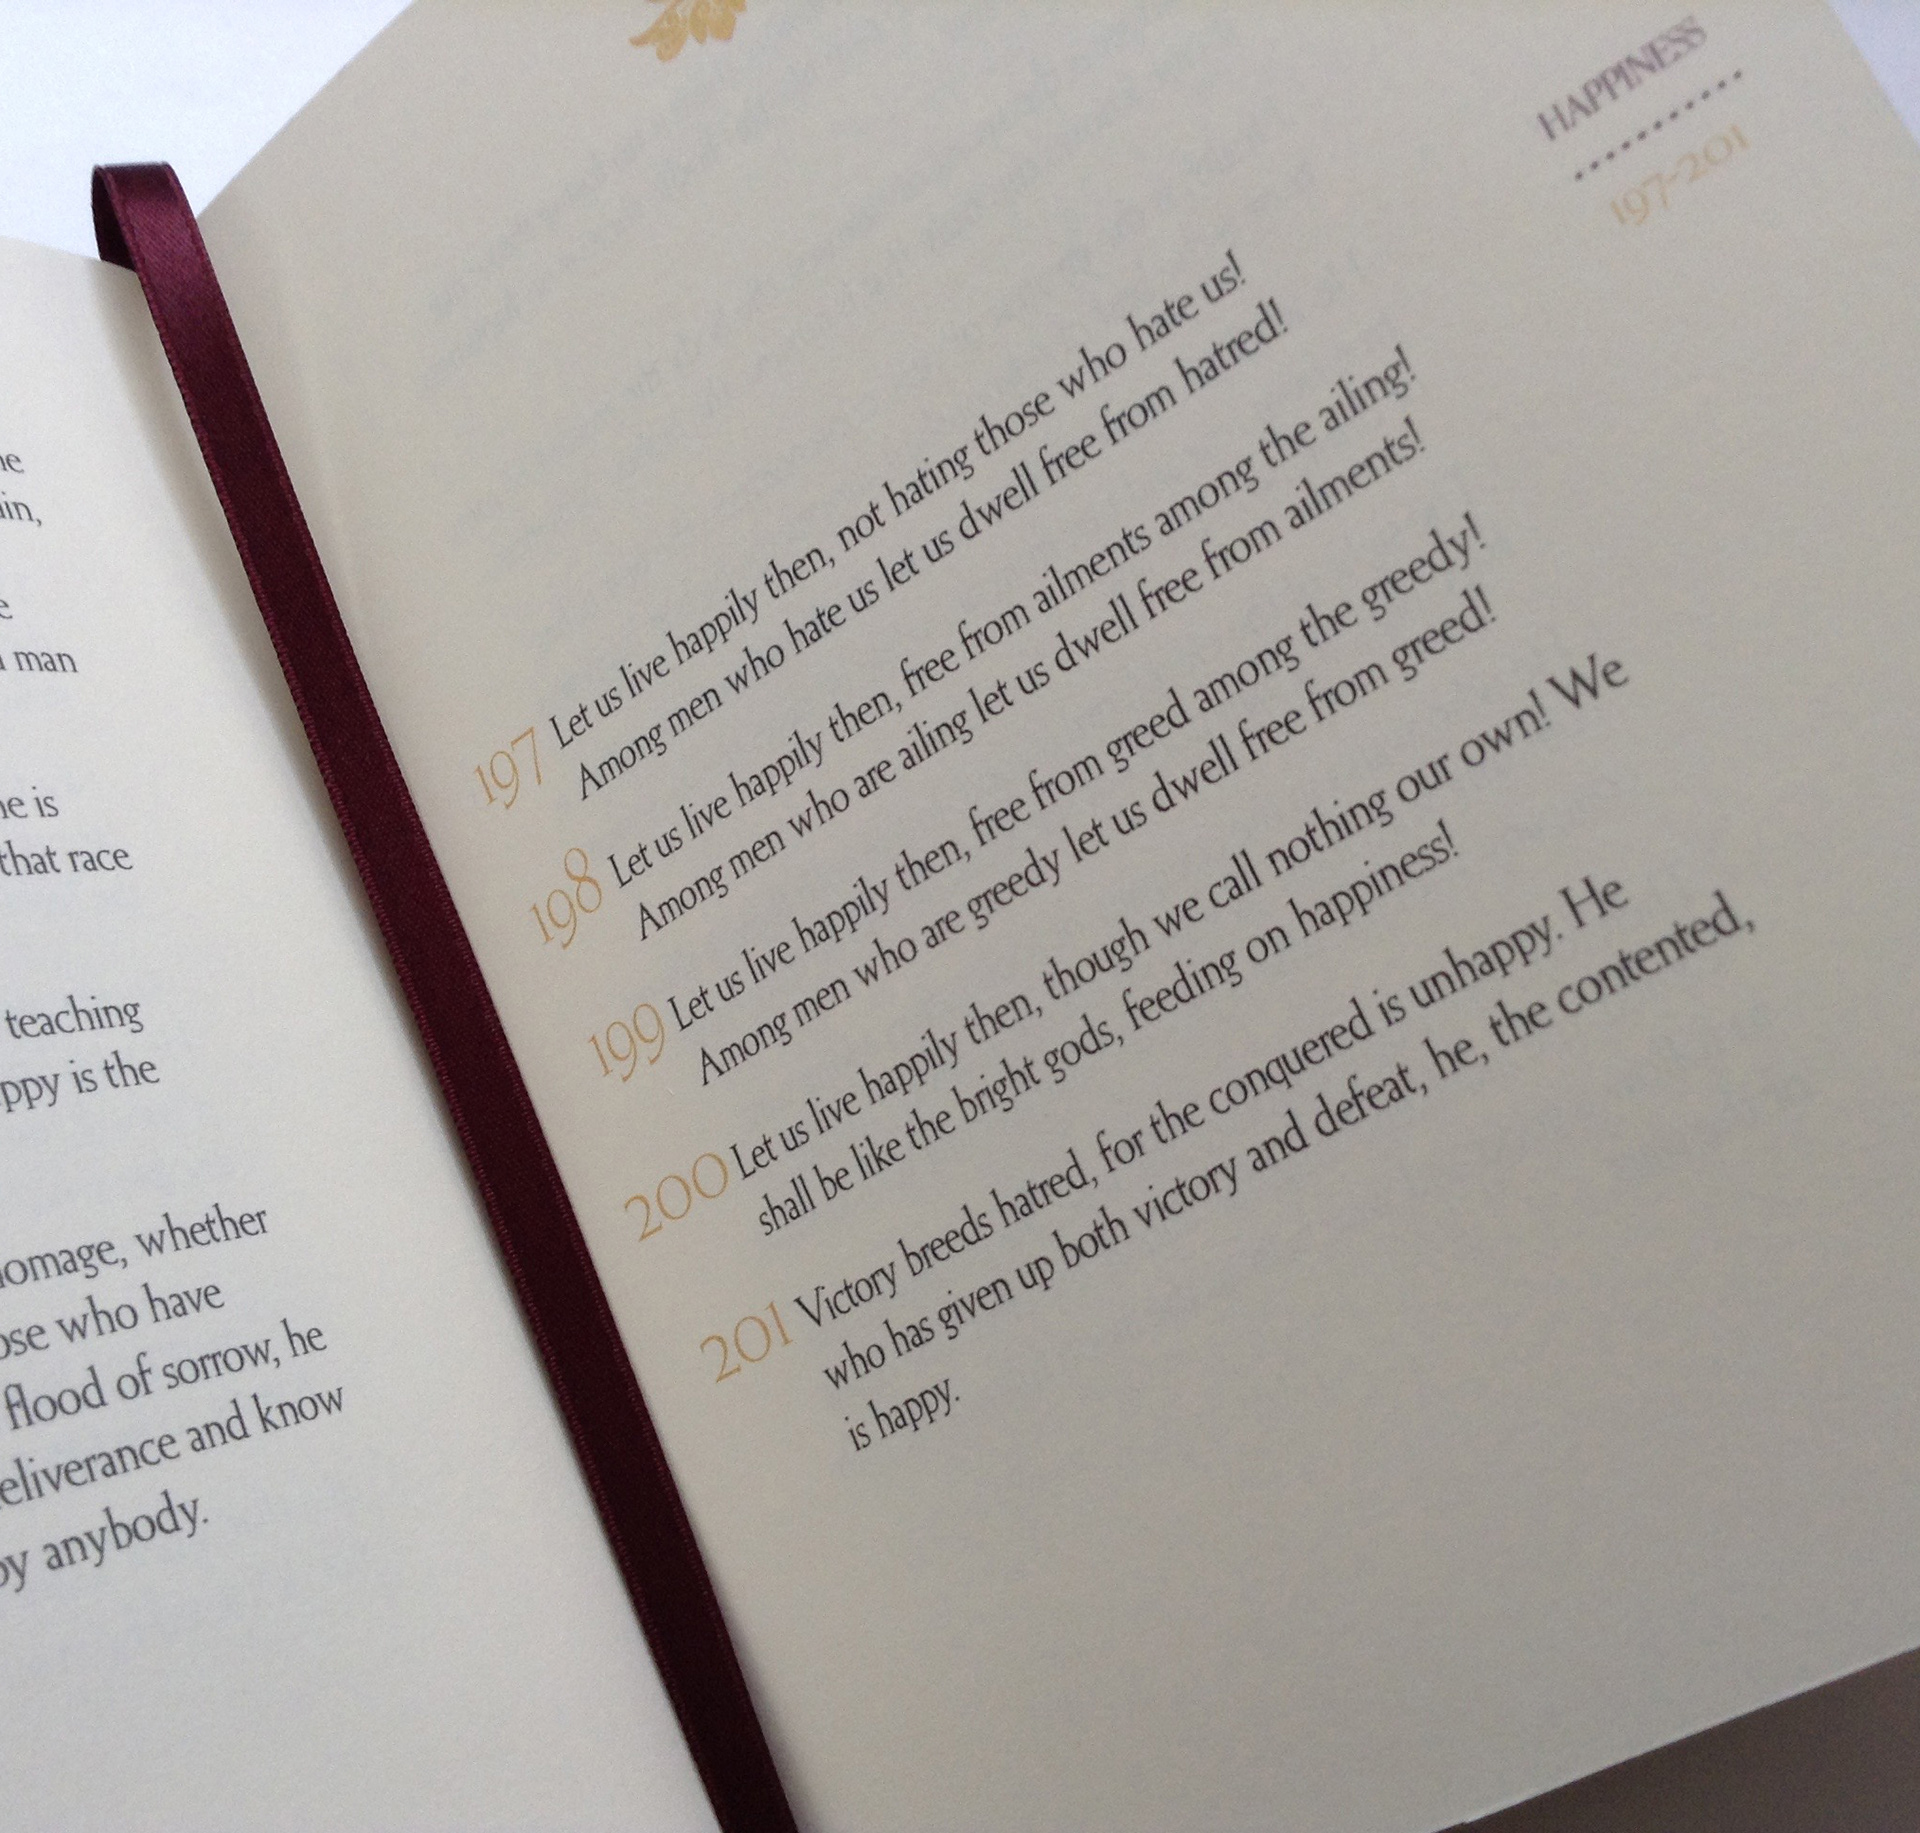 ne
in,
e
man
ne is
that race
teaching
ppy is the
homage, whether
ose who have
flood of sorrow, he
deliverance and know
by anybody.
HAPPINESS
197-201
197 Let us live happily then, not hating those who hate us!
Among men who hate us let us dwell free from hatred!
198 Let us live happily then, free from ailments among the ailing!
Among men who are ailing let us dwell free from ailments!
199 Let us live happily then, free from greed among the greedy!
Among men who are greedy let us dwell free from greed!
200 Let us live happily then, though we call nothing our own! We
shall be like the bright gods, feeding on happiness!
201 Victory breeds hatred, for the conquered is unhappy. He
who has given up both victory and defeat, he, the contented,
is happy.